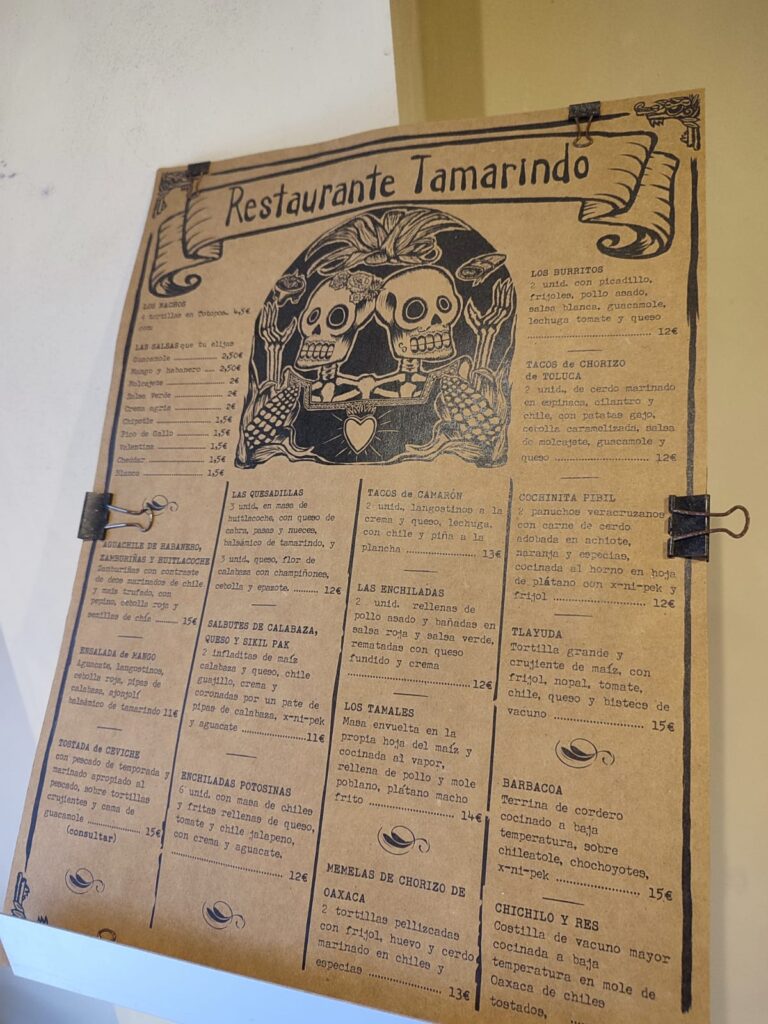 Restaurante Tamarindo
LOS NACHOS
4 tortillas en Totopos. 4,5€
con
LAS SALSAS que tu elijas
Guacamole ............ 2,50€
Mango y habanero .... 2,50€
Molcajete ............ 2€
Salsa Verde .......... 2€
Crema agria .......... 2€
Chipotle ............. 1,5€
Pico de Gallo ........ 1,5€
Valentina ............ 1,5€
Cheddar .............. 1,5€
Blanca ............... 1,5€
AGUACHILE DE HABANERO,
ZAMBURIÑAS Y HUITLACOCHE
Zamburiñas con contraste
de dos marinados de chile
y maiz trufado, con
pepino, cebolla roja y
semillas de chía ...... 15€
ENSALADA de MANGO
Aguacate, langostinos,
cebolla roja, pipas de
calabaza, ajonjolí
balsámico de tamarindo 11€
TOSTADA de CEVICHE
con pescado de temporada y
marinado apropiado al
pescado, sobre tortillas
crujientes y cama de
guacamole ............. 15€
(consultar)
LAS QUESADILLAS
3 unid. en masa de
huitlacoche, con queso de
cabra, pasas y nueces,
balsámico de tamarindo, y
3 unid. queso, flor de
calabaza con champiñones,
cebolla y epazote. ........ 12€
SALBUTES DE CALABAZA,
QUESO Y SIKIL PAK
2 infladitas de maíz
calabaza y queso, chile
guajillo, crema y
coronadas por un pate de
pipas de calabaza, x-ni-pek
y aguacate ................11€
ENCHILADAS POTOSINAS
6 unid. con masa de chiles
y fritas rellenas de queso,
tomate y chile jalapeno,
con crema y aguacate.
........................ 12€
TACOS de CAMARÓN
2 unid., langostinos a la
crema y queso, lechuga,
con chile y piña a la
plancha .................. 13€
LAS ENCHILADAS
2 unid. rellenas de
pollo asado y bañadas en
salsa roja y salsa verde,
rematadas con queso
fundido y crema
..........................12€
LOS TAMALES
Masa envuelta en la
propia hoja del maíz y
cocinada al vapor,
rellena de pollo y mole
poblano, plátano macho
frito .................... 14€
MEMELAS DE CHORIZO DE
OAXACA
2 tortillas pellizcadas
con frijol, huevo y cerdo
marinado en chiles y
especias ................. 13€
LOS BURRITOS
2 unid. con picadillo,
frijoles, pollo asado,
salsa blanca, guacamole,
lechuga tomate y queso
......................... 12€
TACOS de CHORIZO
de TOLUCA
2 unid., de cerdo marinado
en espinaca, cilantro y
chile, con patatas gajo,
cebolla caramelizada, salsa
de molcajete, guacamole y
queso .................... 12€
COCHINITA PIBIL
2 panuchos veracruzanos
con carne de cerdo
adobada en achiote,
naranja y especias,
cocinada al horno en hoja
de plátano con x-ni-pek y
frijol .................... 12€
TLAYUDA
Tortilla grande y
crujiente de maíz, con
frijol, nopal, tomate,
chile, queso y bistecs de
vacuno ................... 15€
BARBACOA
Terrina de cordero
cocinado a baja
temperatura, sobre
chileatole, chochoyotes,
x-ni-pek ................. 15€
CHICHILO Y RES
Costilla de vacuno mayor
cocinada a baja
temperatura en mole de
Oaxaca de chiles
tostados,